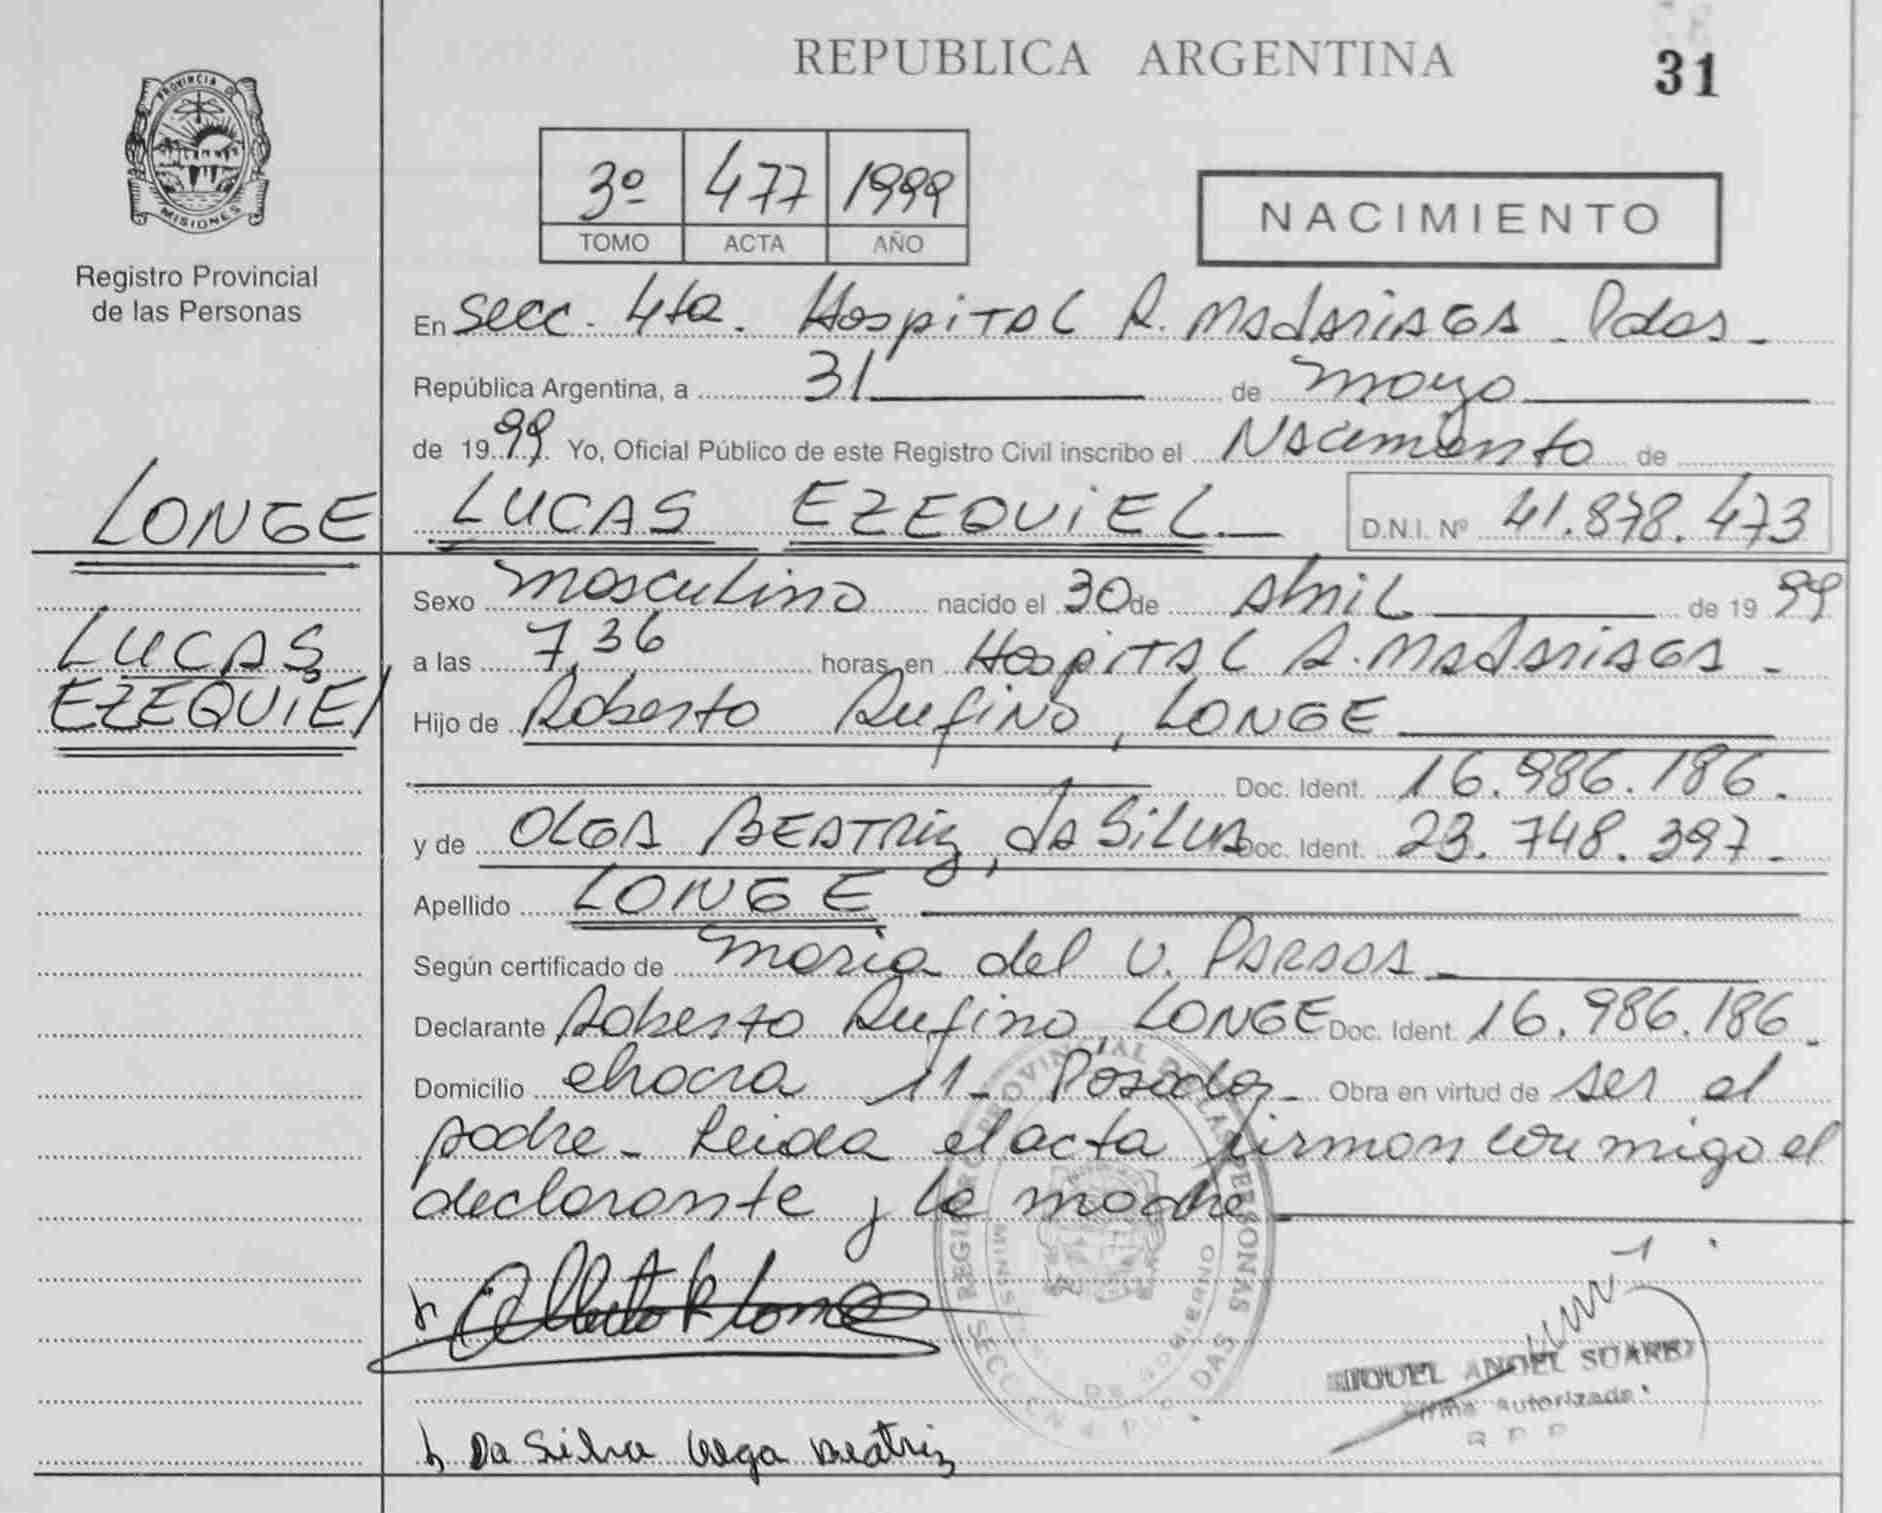 REPUBLICA ARGENTINA
31
PROVINCIA DE
MISIONES
Registro Provincial
de las Personas
3º 477 1999
TOMO ACTA AÑO
NACIMIENTO
En Secc. 4ta. Hospital R. Madariaga - Pdas -
República Argentina, a 31 de mayo
de 1999. Yo, Oficial Público de este Registro Civil inscribo el Nacimiento de
LONGE
LUCAS EZEQUIEL.
D.N.I. Nº 41.878.473
LUCAS
EZEQUIEL
Sexo masculino nacido el 30 de Abril de 1999
a las 7,36 horas, en Hospital R. Madariaga -
Hijo de Roberto Rufino, LONGE
Doc. Ident. 16.986.186.
y de OLGA BEATRIZ, da SILVA Doc. Ident. 23.748.397 -
Apellido LONGE
Según certificado de maria del V.
Declarante Roberto Rufino, LONGE Doc. Ident. 16.986.186 -
Domicilio chacra 11 - Posadas - Obra en virtud de ser el
padre - Leida el acta firman conmigo el
declarante y la madre
REGISTRO PROVINCIAL DE LAS PERSONAS
Da Silva Olga Beatriz
MIGUEL ANGEL SUAREZ
Firma Autorizada
R P P